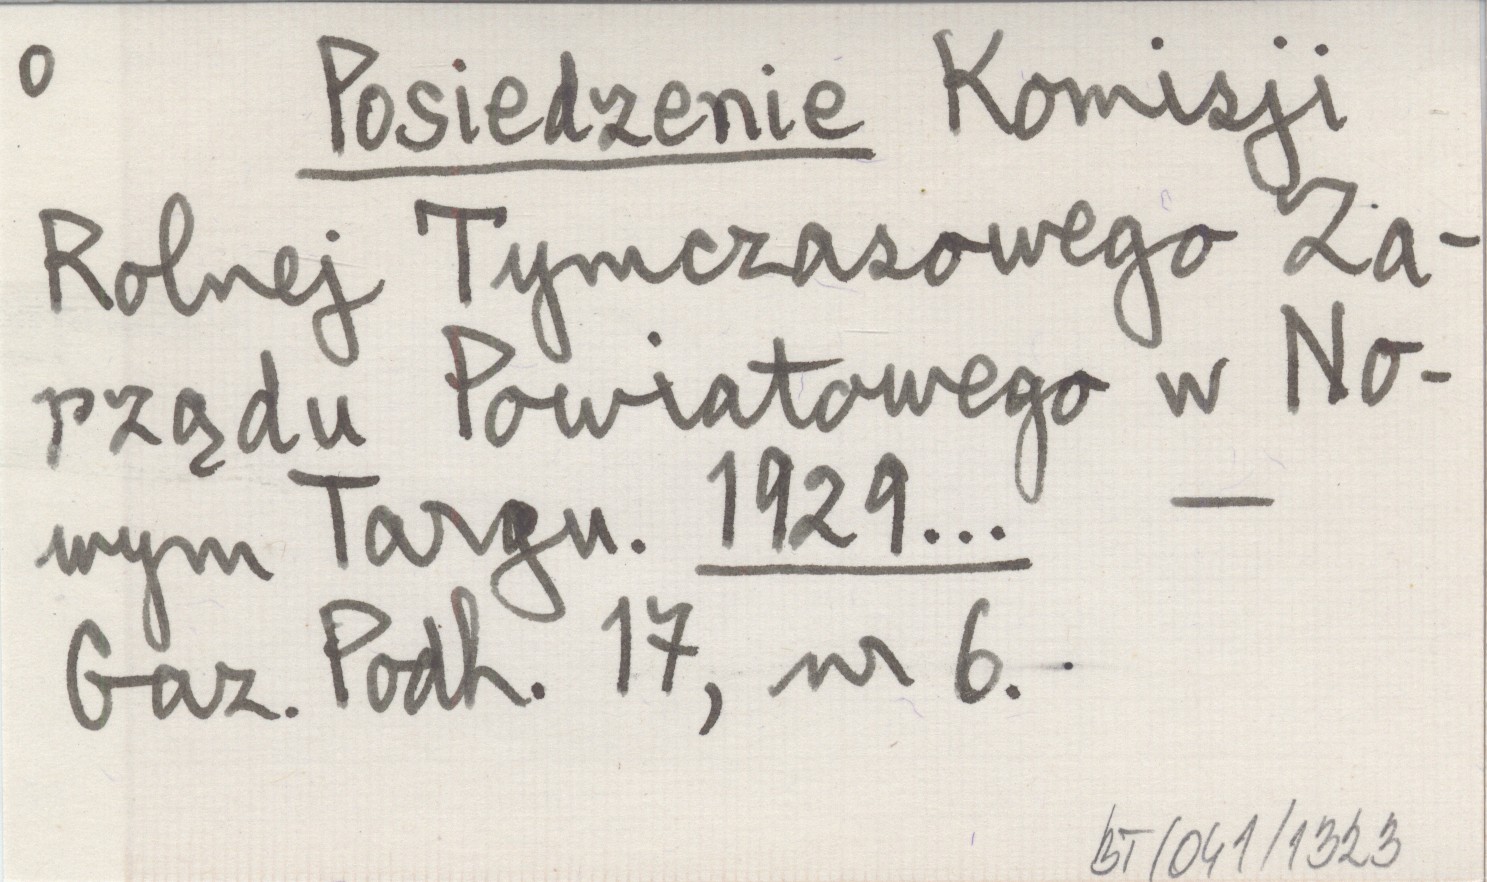 o Posiedzenie Komisji
Rolnej Tymczasowego Za-
rządu Powiatowego w No-
wym Targu. 1929... —
Gaz. Podh. 17, nr 6.
BT/041/1323